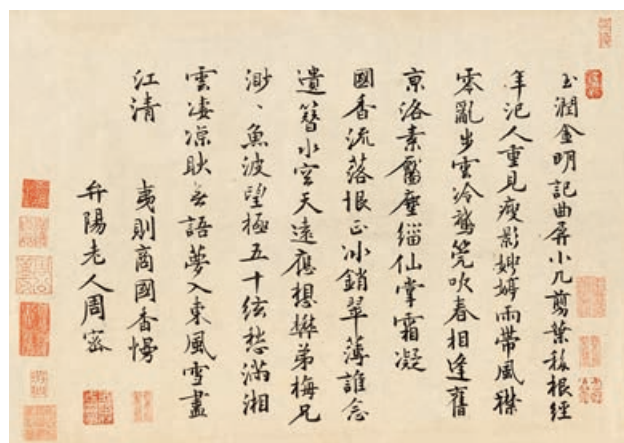 玉潤金明記曲屏小几翦葉移根經
年汜人重見瘦影娉婷雨帶風襟
零亂步雲冷鵞筦吹春相逢舊
京洛素靨塵緇仙掌霜凝
國香流落恨正冰銷翠薄誰念
遺簪水空天遠應想礬弟梅兄
渺、魚波望極五十絃愁滿湘
雲凄凉耿無語夢入東風雪盡
江清
夷則商國香慢
弁陽老人周密